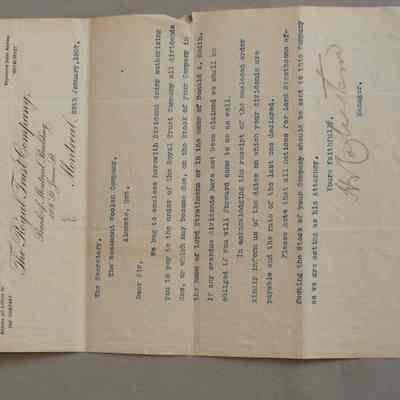 Address all Letters to
THE COMPANY
The Royal Trust Company.
Bank of Montreal Building
Montreal
25th January, 1907.
The Secretary,
The Rosamond Woolen Company,
Almonte, Ont.
Dear Sir,
We beg to enclose herewith Dividend Order authorizing
you to pay to the order of the Royal Trust Company all dividends
due, or which may become due, on the Stock of your Company in
the name of Lord Strathcona or in the name of Donald A. Smith.
If any arrears dividends have not been claimed we shall be
obliged if you will forward same to us as well.
In acknowledging the receipt of the enclosed order
kindly inform us of the dates on which your dividends are
payable and the rate of the last one declared.
Please note that all notices for Lord Strathcona af-
fecting the Stock of your Company should be sent to this Company
as we are acting as his Attorney.
Yours faithfully,
Manager.